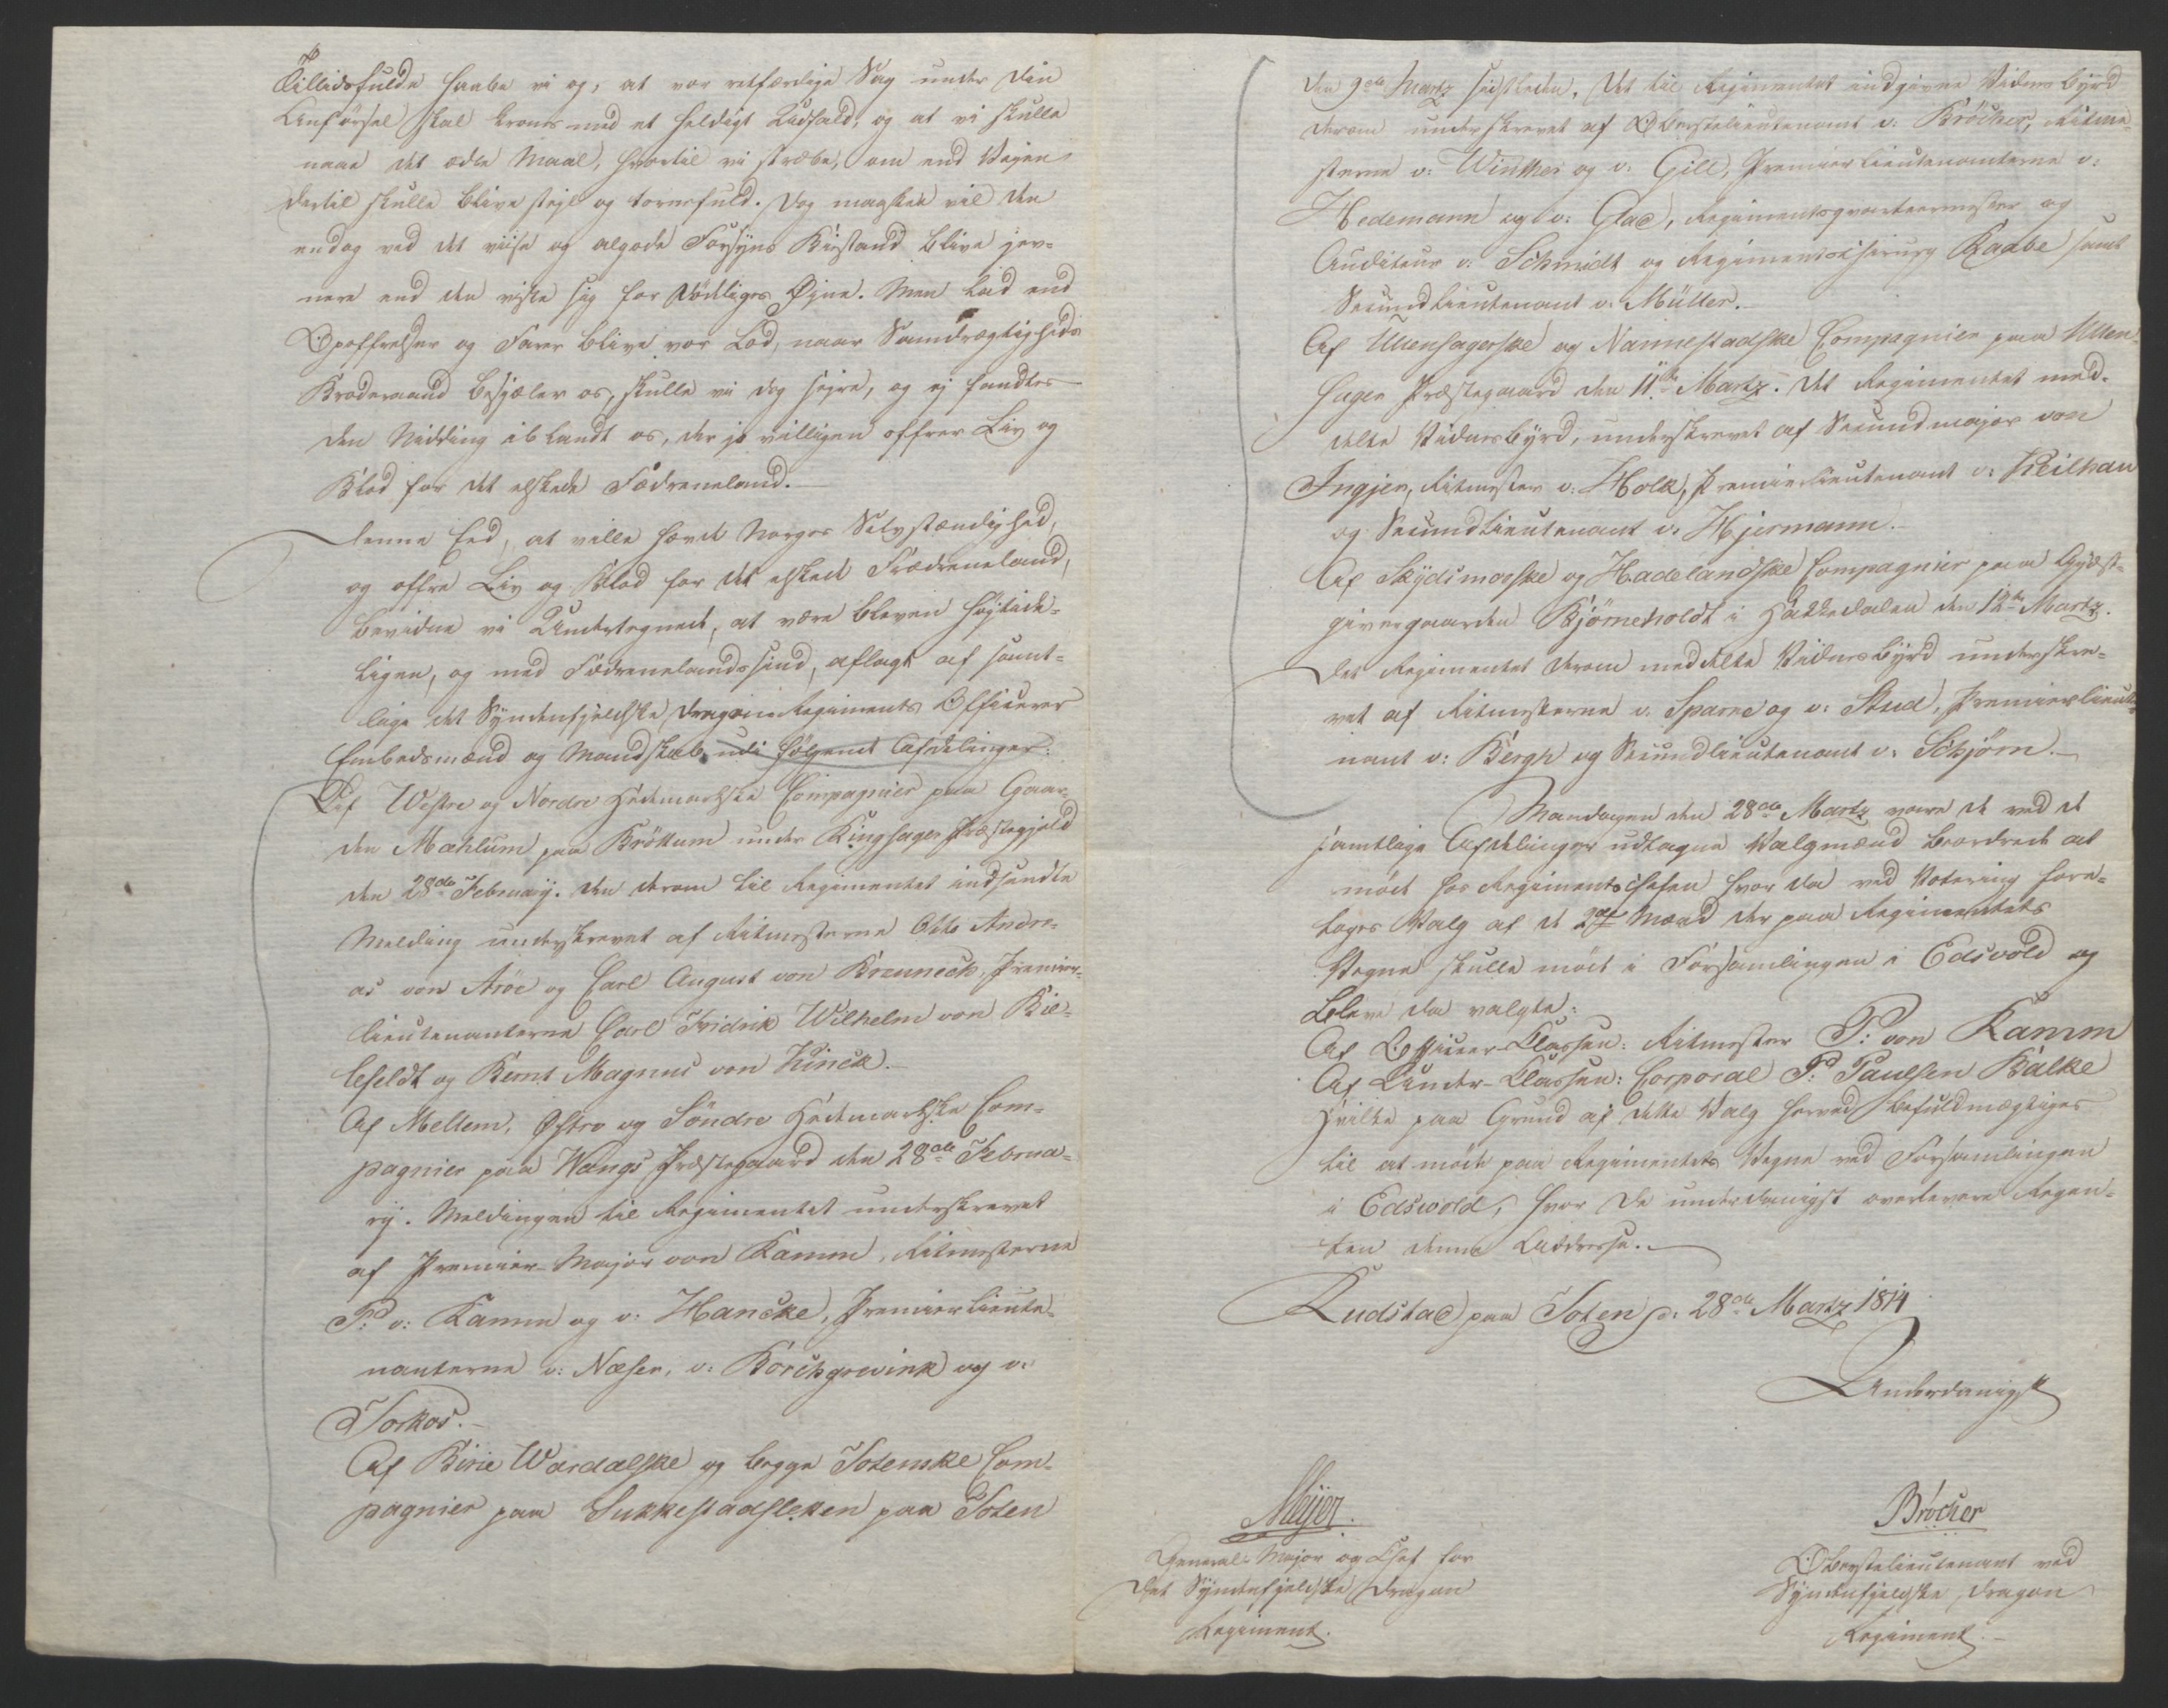 Tillidsfulde haabe vi og, at vor retfærdige Sag under din
Anförsel skal krones med et heldigt Udfald, og at vi skulle
naae det ædle Maal, hvortil vi stræbe, om end Vejen
dertil skulle blive stejl og tornefuld. Dog maaskee vil den
endog ved det viise og algode Forsyns Bistand blive jev-
nere end den viste sig for Dödeliges Öjne. Men lad end
Opoffrelser og Farer blive vor Lod, naar Samdrægtigheds
Broderaand besjæler os, skulle vi dog sejre, og ej fandtes
den Nidding iblandt os, der jo villigen offrer Liv og
Blod for det elskede Fædreneland.
Denne Eed, at ville hævde Norges Selvstændighed,
og offre Liv og Blod for det elskede Fædreneland,
bevidne vi Undertegnede, at være bleven höjtide-
ligen, og med Fædrenelandssind, aflagt af samt-
lige det Syndenfjeldske Dragon Regiments Officerer
Embedsmænd og Mandskab, udi fölgende Afdelinger:
Af Westre og Nordre Hedemarkske Compagnier paa Gaar-
den Mæhlum paa Bröttum under Ringsager Præstegjeld
den 28de February. Den derom til Regimentet indsendte
Melding underskrevet af Ritmesterne Otto Andre-
as von Aröe og Carl August von Brenneck, Premier-
lieutenanterne Carl Fridrik Wilhelm von Bil-
lefeldt og Bernt Magnus von Kinck.
Af Mellem, Östre og Söndre Hedemarkske Com-
pagnier paa Wangs Præstegaard den 28de Februa-
ry. Meldingen til Regimentet underskrevet
af Premier-Major von Kamm, Ritmesterne
P: v: Kamm og v: Hancke, Premierlieute-
nanterne v: Næser, v: Borchgrevink og v:
Torkos.
Af Birie Wardalske og begge Totenske Com-
pagnier paa Sukkestadsletten paa Toten
den 9de Martz sidstleden. Det til Regimentet indgivne Vidnesbyrd
derom underskrevet af Oberstelieutenant v: Bröcher, Ritme-
sterne v: Winther og v: Gill, Premierlieutenanterne v:
Hedemann og v: Glad, Regimentsqvarteermester og
Auditeur v: Schmidt og Regimentschirurg Raabe samt
Secundlieutenant v: Müller.
Af Ullensagerske og Nannestadske Compagnier paa Ullen-
sager Præstegaard den 11te Martz. Det Regimentet med-
delte Vidnesbyrd, underskrevet af Secundmajor von
Ingjer, Ritmester v: Holck, Premierlieutenant v: Keilhau
og Secundlieutenant v: Hjermann.
Af Skydsmoeske og Hadelandske Compagnier paa Gjæst-
givergaarden Björneholdt i Hakkedalen den 12te Martz.
Det Regimentet derom meddelte Vidnesbyrd underskre-
vet af Ritmesterne v: Sparre og v: Stud, Premierlieute-
nant v: Bergh og Secundlieutenant v: Schjörn.
Mandagen den 28de Martz vare de ved de
samtlige Afdelinger udtagne Valgmænd beordrede at
möde hos Regimentschefen hvor da ved Votering fore-
toges Valg af de 2de Mænd der paa Regimentets
Vegne skulle möde i Forsamlingen i Edsvold og
bleve da valgte:
Af Officeer-Classen: Ritmester P: von Kamm
Af Under-Classen: Corporal P: Paulsen Balke
hvilke paa Grund af dette Valg herved befuldmægtiges
til at möde paa Regimentets Vegne ved Forsamlingen
i Edswold, hvor de underdanigst overlevere Regen-
ten denne Addresse.
Rudstad paa Toten d: 28de Martz 1814
Underdanigst
Meijer.
General-Major og Chef for
det Syndenfjeldske Dragon
Regiment.
Bröcher
Oberstelieutenant ved
Syndenfjeldske Dragon
Regiment.